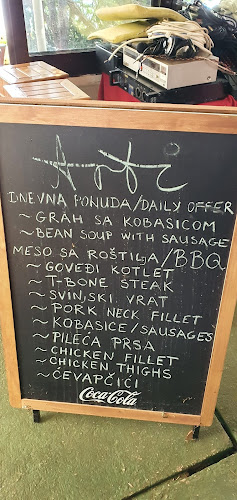 DNEVNA PONUDA/DAILY OFFER
~GRAH SA KOBASICOM
~BEAN SOUP WITH SAUSAGE
MESO SA ROŠTILJA/BBQ
~ GOVEĐI KOTLET
~ T-BONE STEAK
~ SVINJSKI VRAT
~ PORK NECK FILLET
~ KOBASICE/SAUSAGES
~ PILEĆA PRSA
~ CHICKEN FILLET
~ CHICKEN THIGHS
~ ĆEVAPČIĆI
Coca-Cola